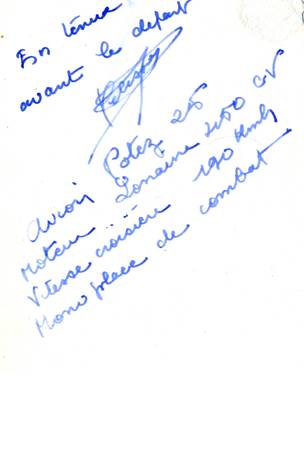 En tenue
avant le depart
Avion Potez 25
Moteur... Lorraine 450 CV
Vitesse croisière 190 Kmh
Mono place de combat